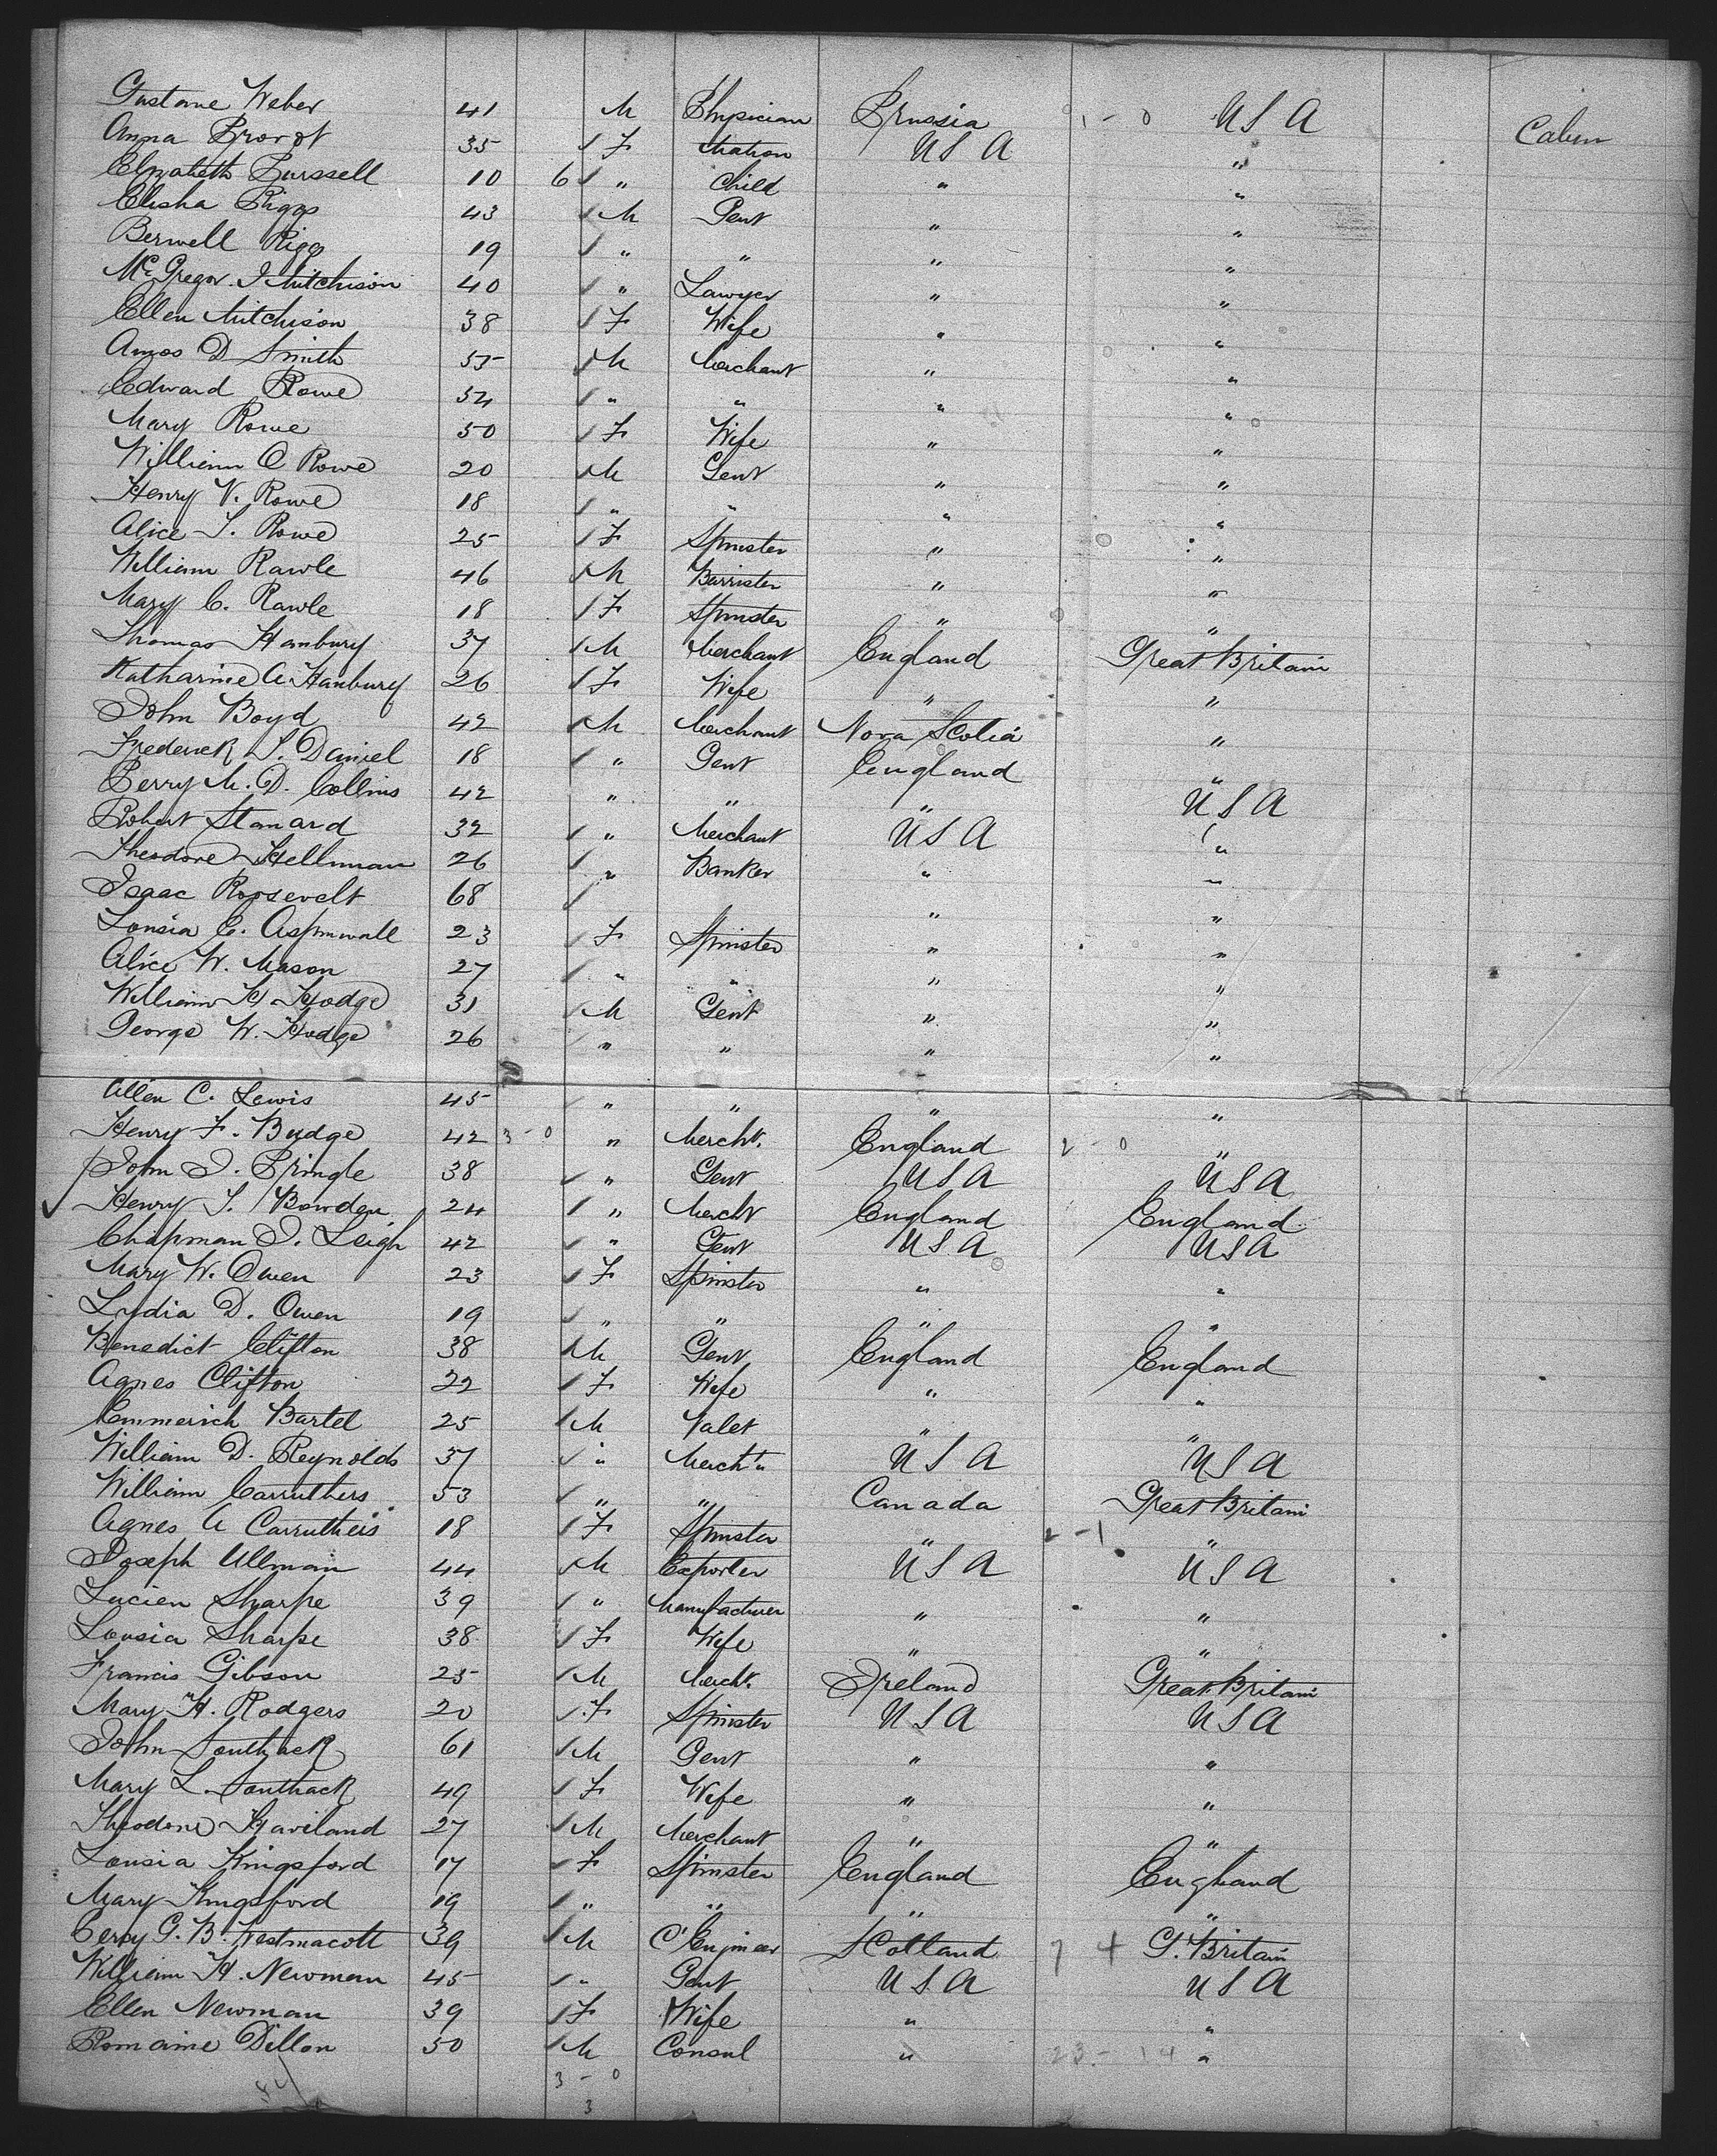 Gustave Weber 41 M Physician Prussia 1 - 0 U S A Cabin
Anna Provot 35 F Matron U S A "
Elizabeth Purssell 10 6 " Child " "
Elisha Riggs 43 M Gent " "
Berwell Riggs 19 " " " "
McGregor J Mitchison 40 " Lawyer " "
Ellen Mitchison 38 F Wife " "
Amos D Smith 55 M Merchant " "
Edward Rowe 54 " " " "
Mary Rowe 50 F Wife " "
William C Rowe 20 M Gent " "
Henry V. Rowe 18 " " " "
Alice T. Rowe 25 F Spinster " "
William Rawle 46 M Barrister " "
Mary C. Rawle 18 F Spinster " "
Thomas Hanbury 37 M Merchant England Great Britain
Katharine A Hanbury 26 F Wife " "
John Boyd 42 M Merchant Nova Scotia "
Frederick S. Daniel 18 " Gent England "
Perry M. D. Collins 42 " " " U S A
Robert Stanard 32 " Merchant U S A "
Theodore Hellmman 26 " Banker " "
Isaac Roosevelt 68 " "
Lousia E. Aspinwall 23 F Spinster " "
Alice W. Mason 27 " " " "
William H Hodge 31 M Gent " "
George W. Hodge 26 " " " "
Allen C. Lewis 45 " " " "
Henry F. Budge 42 3 - 0 " Mercht. England 2 - 0 "
John J. Pringle 38 " Gent U S A U S A
Henry S. Bowden 24 " Mercht England England
Chapman J. Leigh 42 " Gent U S A U S A
Mary W. Owen 23 F Spinster " "
Lydia D. Owen 19 " " " "
Benedict Clifton 38 M Gent England England
Agnes Clifton 22 F Wife " "
Emmerich Bartel 25 M Valet " "
William D. Reynolds 37 " Mercht " U S A U S A
William Carruthers 53 " " Canada Great Britain
Agnes A Carruthers 18 F Spinster " 2 - 1 "
Joseph Ullman 44 M Exporter U S A U S A
Lucien Sharpe 39 " Manufacturer " "
Lousia Sharpe 38 F Wife " "
Francis Gibson 25 M Mercht. Ireland Great Britain
Mary H. Rodgers 20 F Spinster U S A U S A
John Southack 61 M Gent " "
Mary L. Southack 49 F Wife " "
Theodore Haviland 27 M Merchant " "
Lousia Kingsford 17 F Spinster England England
Mary Kingsford 19 " " " "
Percy G. B. Westmacott 39 M C' Engineer Scotland 7 4 G. Britain
William H. Newman 45 " Gent U S A U S A
Ellen Newman 39 F Wife " "
Romaine Dillon 50 M Consul " 23 - 14 "
3 - 0
3